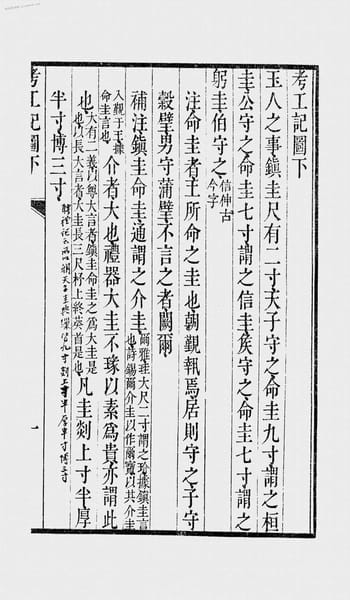 考工記圖下
玉人之事鎮圭尺有二寸天子守之命圭九寸謂之桓
圭公守之命圭七寸謂之信圭矦守之命圭七寸謂之
躬圭伯守之信伸古今字
注命圭者王所命之圭也朝覲執焉居則守之子守
榖璧男守蒲璧不言之者闕爾
補注鎮圭命圭通謂之介圭爾雅珪大尺二寸謂之玠據鎮圭言也詩錫爾介圭以作爾寶以其介圭
入覲于王據命圭言也介者大也禮器大圭不琢以素爲貴亦謂此
也大有二義以粤大言者鎮圭命圭之爲大圭是也以長大言者大圭長三尺杼上終葵首是也凡圭剡上寸半厚
半寸博三寸聘禮記云所以朝天子圭與繅皆九寸剡上寸半厚半寸博三寸
考工記圖下
一